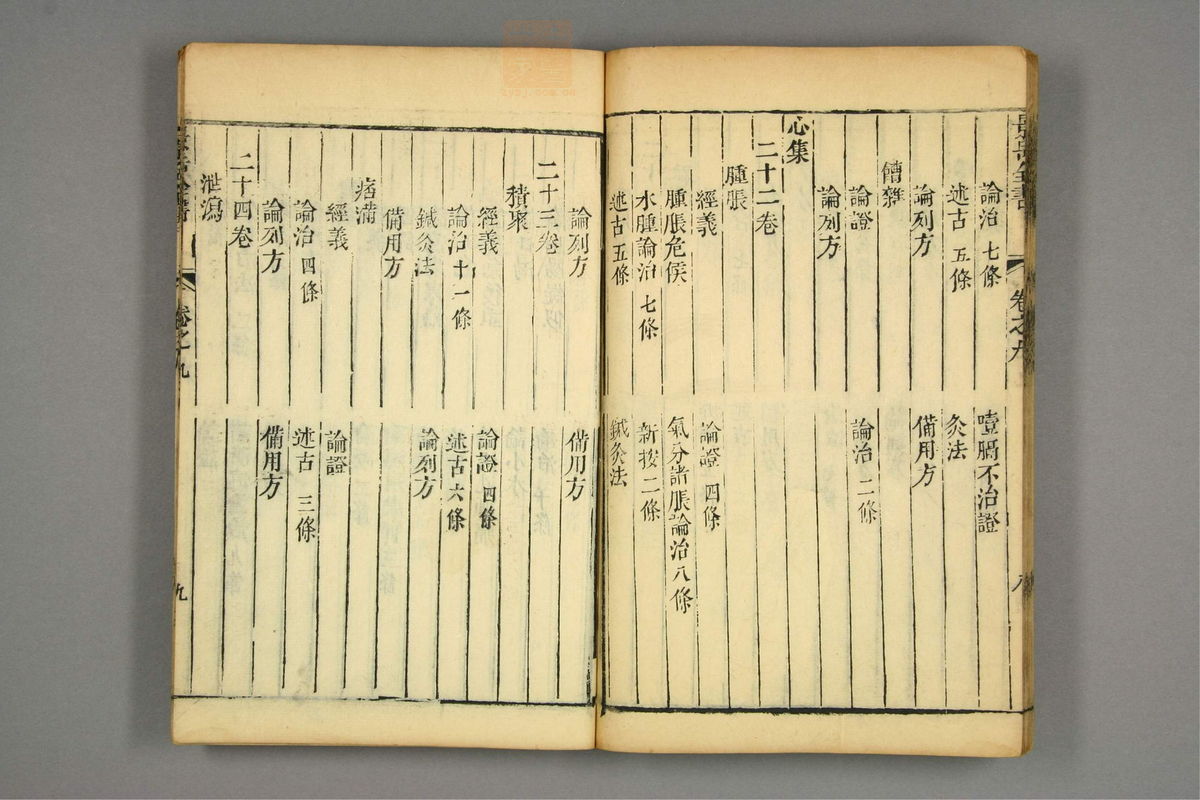 論治 七條 噎膈不治證
述古 五條 灸法
論列方 備用方
饐雜
論證 論治 二條
論列方
心集
二十二卷
腫脹
經義 論證 四條
腫脹危侯 氣分諸脹論治 八條
水腫論治 七條 新按 二條
述古 五條 鍼灸法
卷之九
八
論列方 備用方
二十三卷
積聚
經義 論證 四條
論治 十一條 述古 六條
鍼灸法 論列方
備用方
痞滿
經義 論證
論治 四條 述古 三條
論列方 備用方
二十四卷
泄瀉
卷之九
九